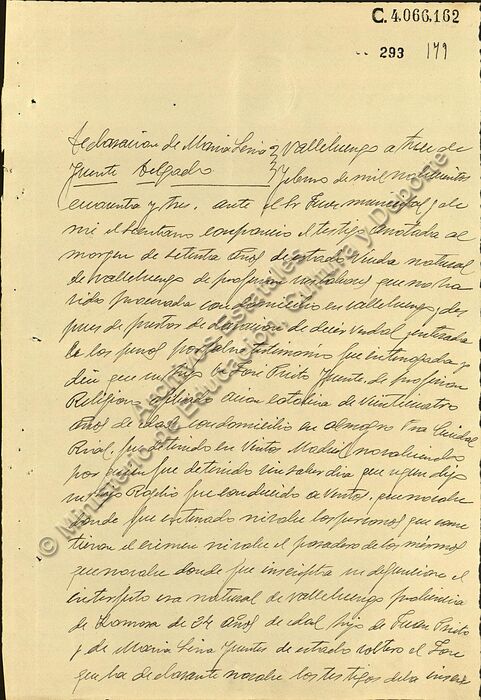 C.4.066.162
293 179
declaración de María Lina Valleluengo a tres de
Fuente Delgado Febrero de mil novecientos
cuarenta y tres. ante el Sr Juez municipal y de
mi el Secretario compareció el testigo anotada al
margen de setenta años de estado viuda natural
de Valleluengo de profesión sus labores que no ha
sido procesada con domicilio en Valleluengo y des
pues de decir verdad enterada
de las penas por falso testimonio fue interrogada y
dijo que su hijo José Prieto Fuente, de profesión
Religioso de veinticuatro
años de edad con domicilio en Almagro Ciudad
Real fue detenido en Madrid no sabiendo
por quien fue detenido sin saber dia que
su hijo Rogelio fue conducido a que no sabe
donde fue enterrado ni sabe las personas que come
tieron el crimen ni sabe el paradero de los mismos
que no sabe donde fue inscripta su defuncion el
era natural de Valleluengo provincia
de Zamora de 24 años de edad hijo de Juan Prieto
y de María Lina Fuente de estado soltero el José
que la declarante no sabe los testigos
© Ministerio de Educación, Cultura y Deporte
Archivos Estatales